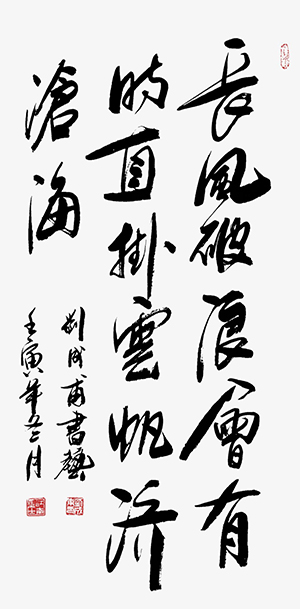 長風破浪會有
時直掛雲帆濟
滄海
劉成甫書藝
壬寅年五二月